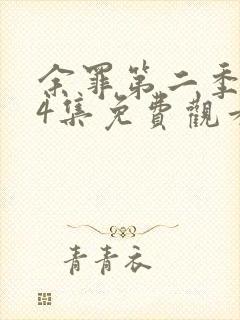 余罪第二季
4集免費觀
青青衣